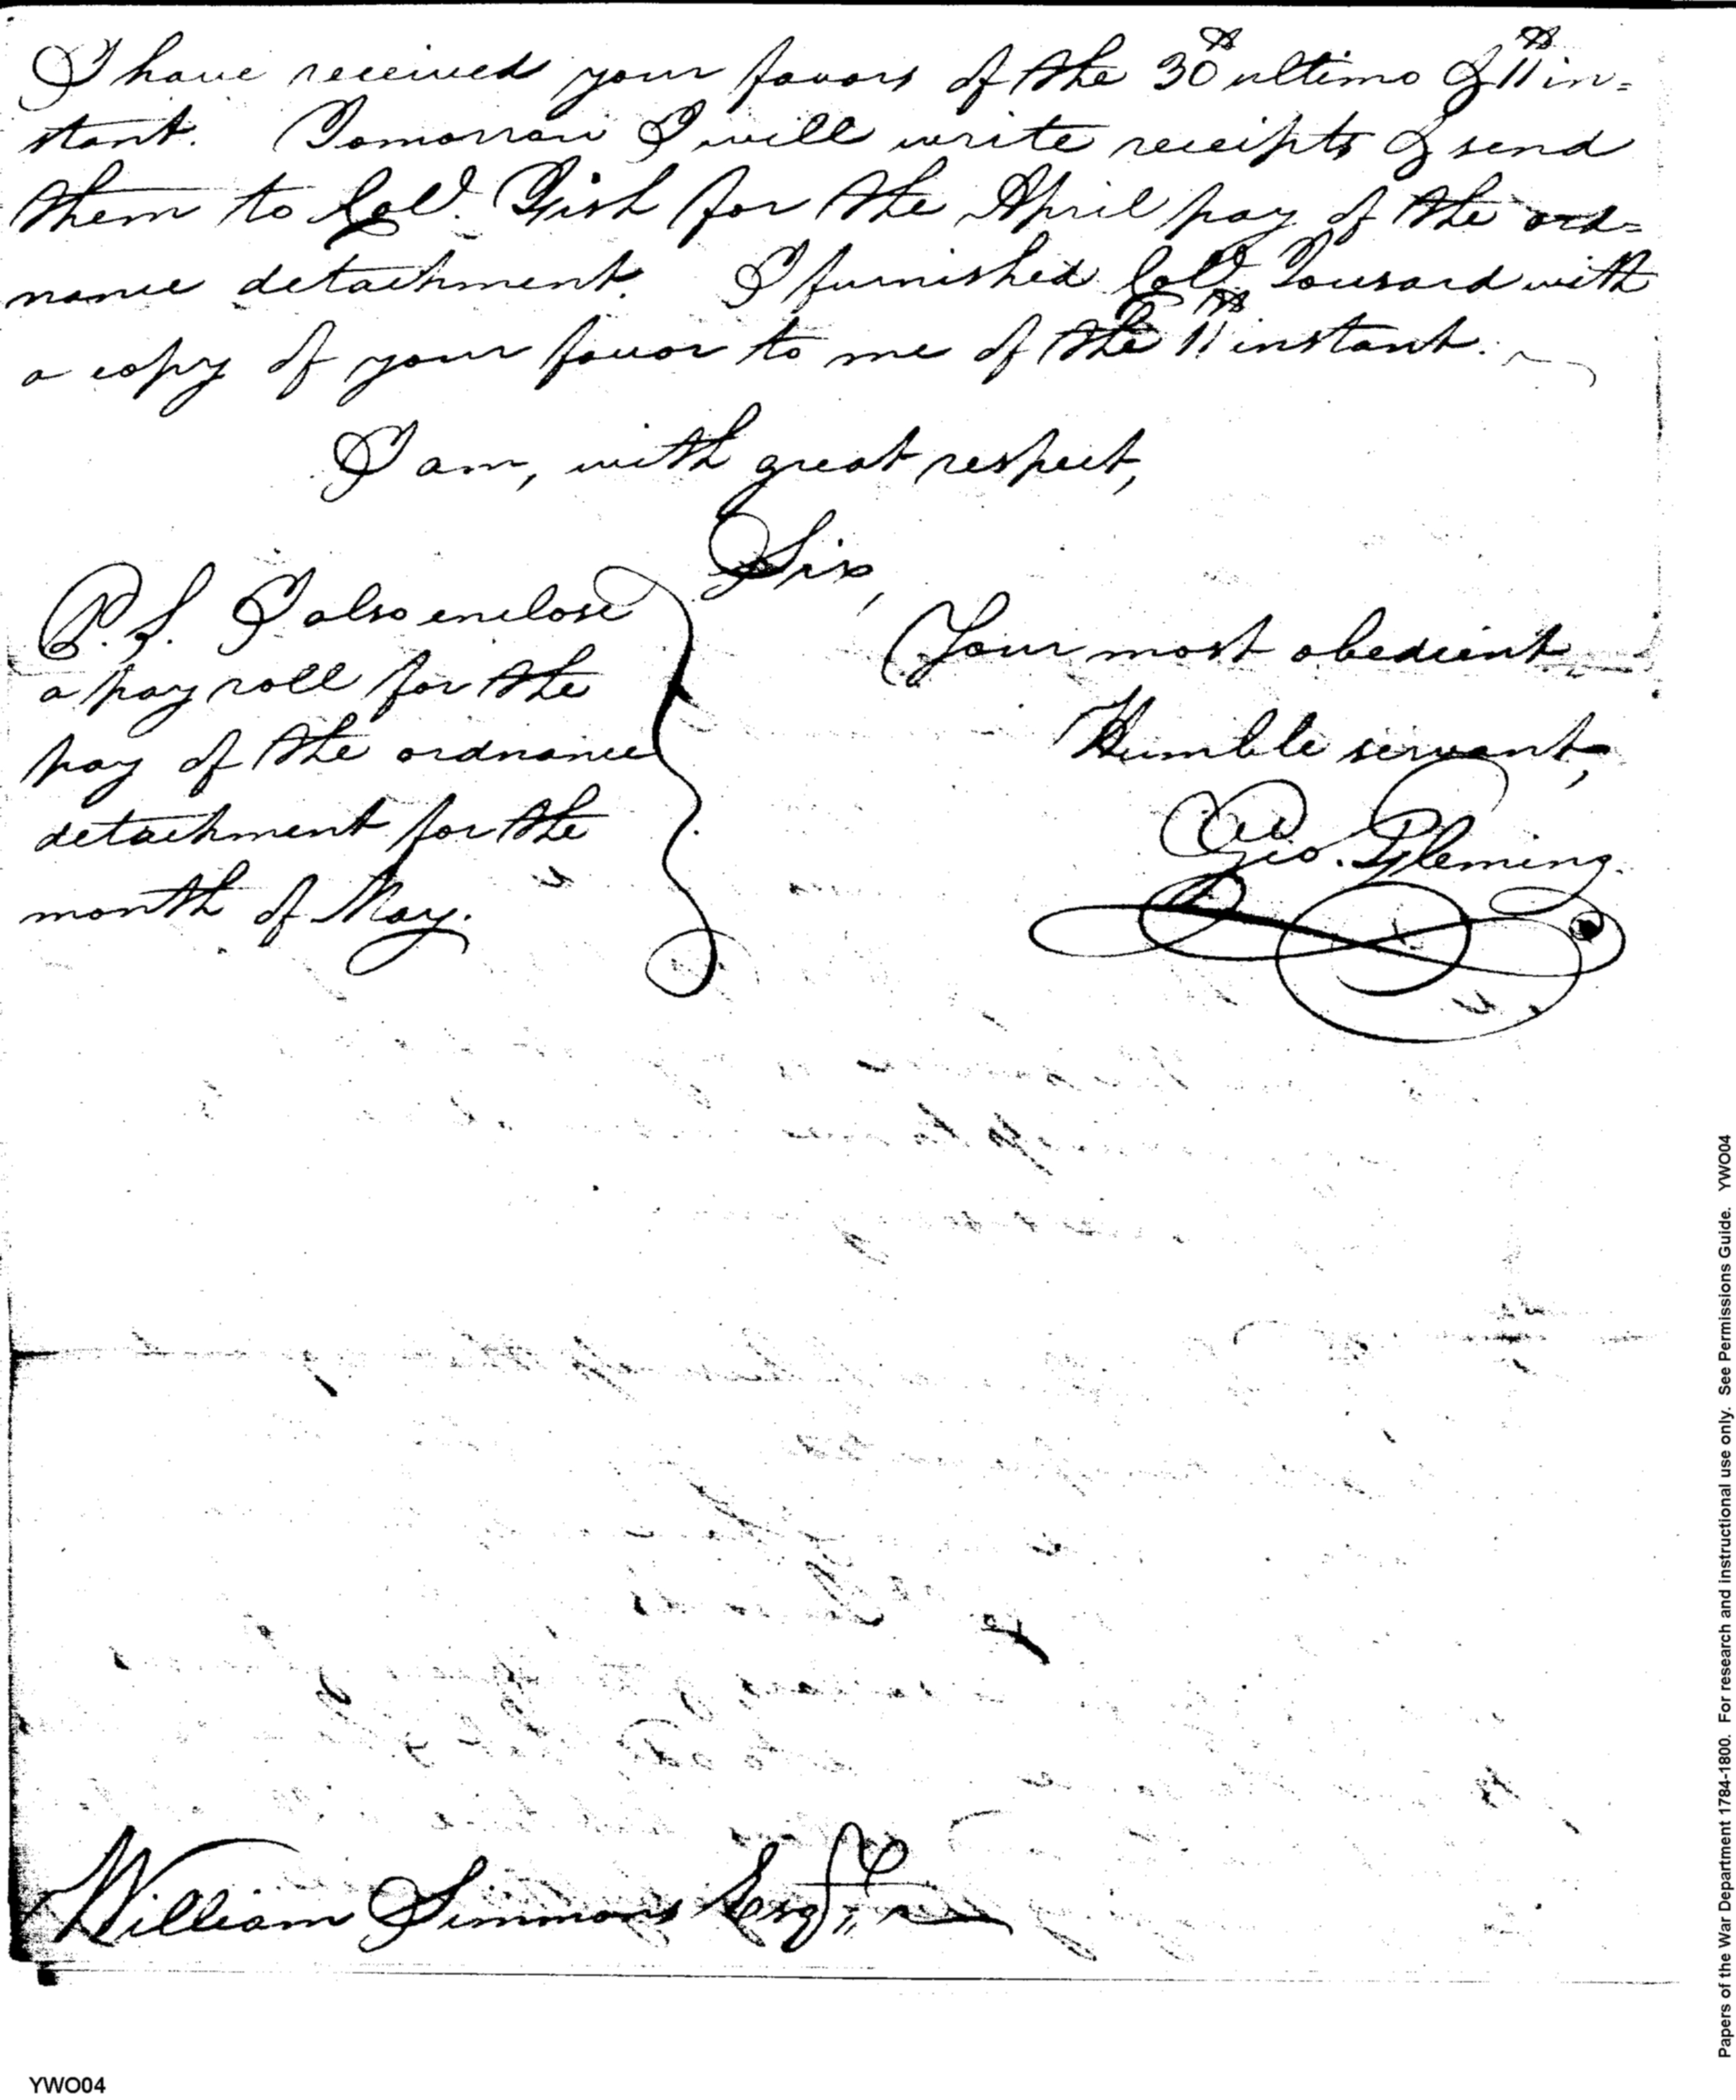 I have received your favors of the 30th ultimo & 11th in=
stant. Tomorrow I will write receipts & send
them to Col. Fish for the April pay of the ord=
nance detachment. I furnished Col. Tousard with
a copy of your favor to me of the 11th instant.
I am, with great respect,
Sir,
Your most obedient
Humble servant,
Geo. Fleming.
P.S. I also enclose
a pay roll for the
pay of the ordnance
detachment for the
month of May.
William Simmons Esqr.
YWO04
Papers of the War Department 1784-1800. For research and instructional use only. See Permissions Guide. YWO04